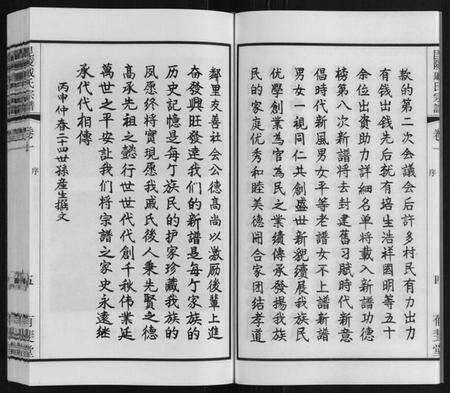 款的第二次会議会后許多村民有力出力
有钱出钱先后就有培生浩祥國明等五十
余位出資助力詳細名单將載入新譜功德
榜第八次新譜將去封建舊习赋時代新意
倡時代新風男女平等老譜女不上譜新譜
男女一視同仁其創盛世新貌續展我族民
优學創業為官為民之業績傳承發揚我族
民的家庭优秀和睦美德闹合家团结孝道
序
四
鄰里友善社会公德高尚以激励後輩上進
奋發興旺發達我们的新譜是每个家族的
历史記憶是每个族民的护家珍藏我族的
夙愿终將實現愿我戚氏後人秉先賢之德
高承先祖之懿行世世代代創千秋偉業延
萬世之平安让我们将宗譜之家史永遠継
承代代相傳
丙申仲春二十四世孫產生撰文
戚氏宗譜
卷一
序
五
有斐堂